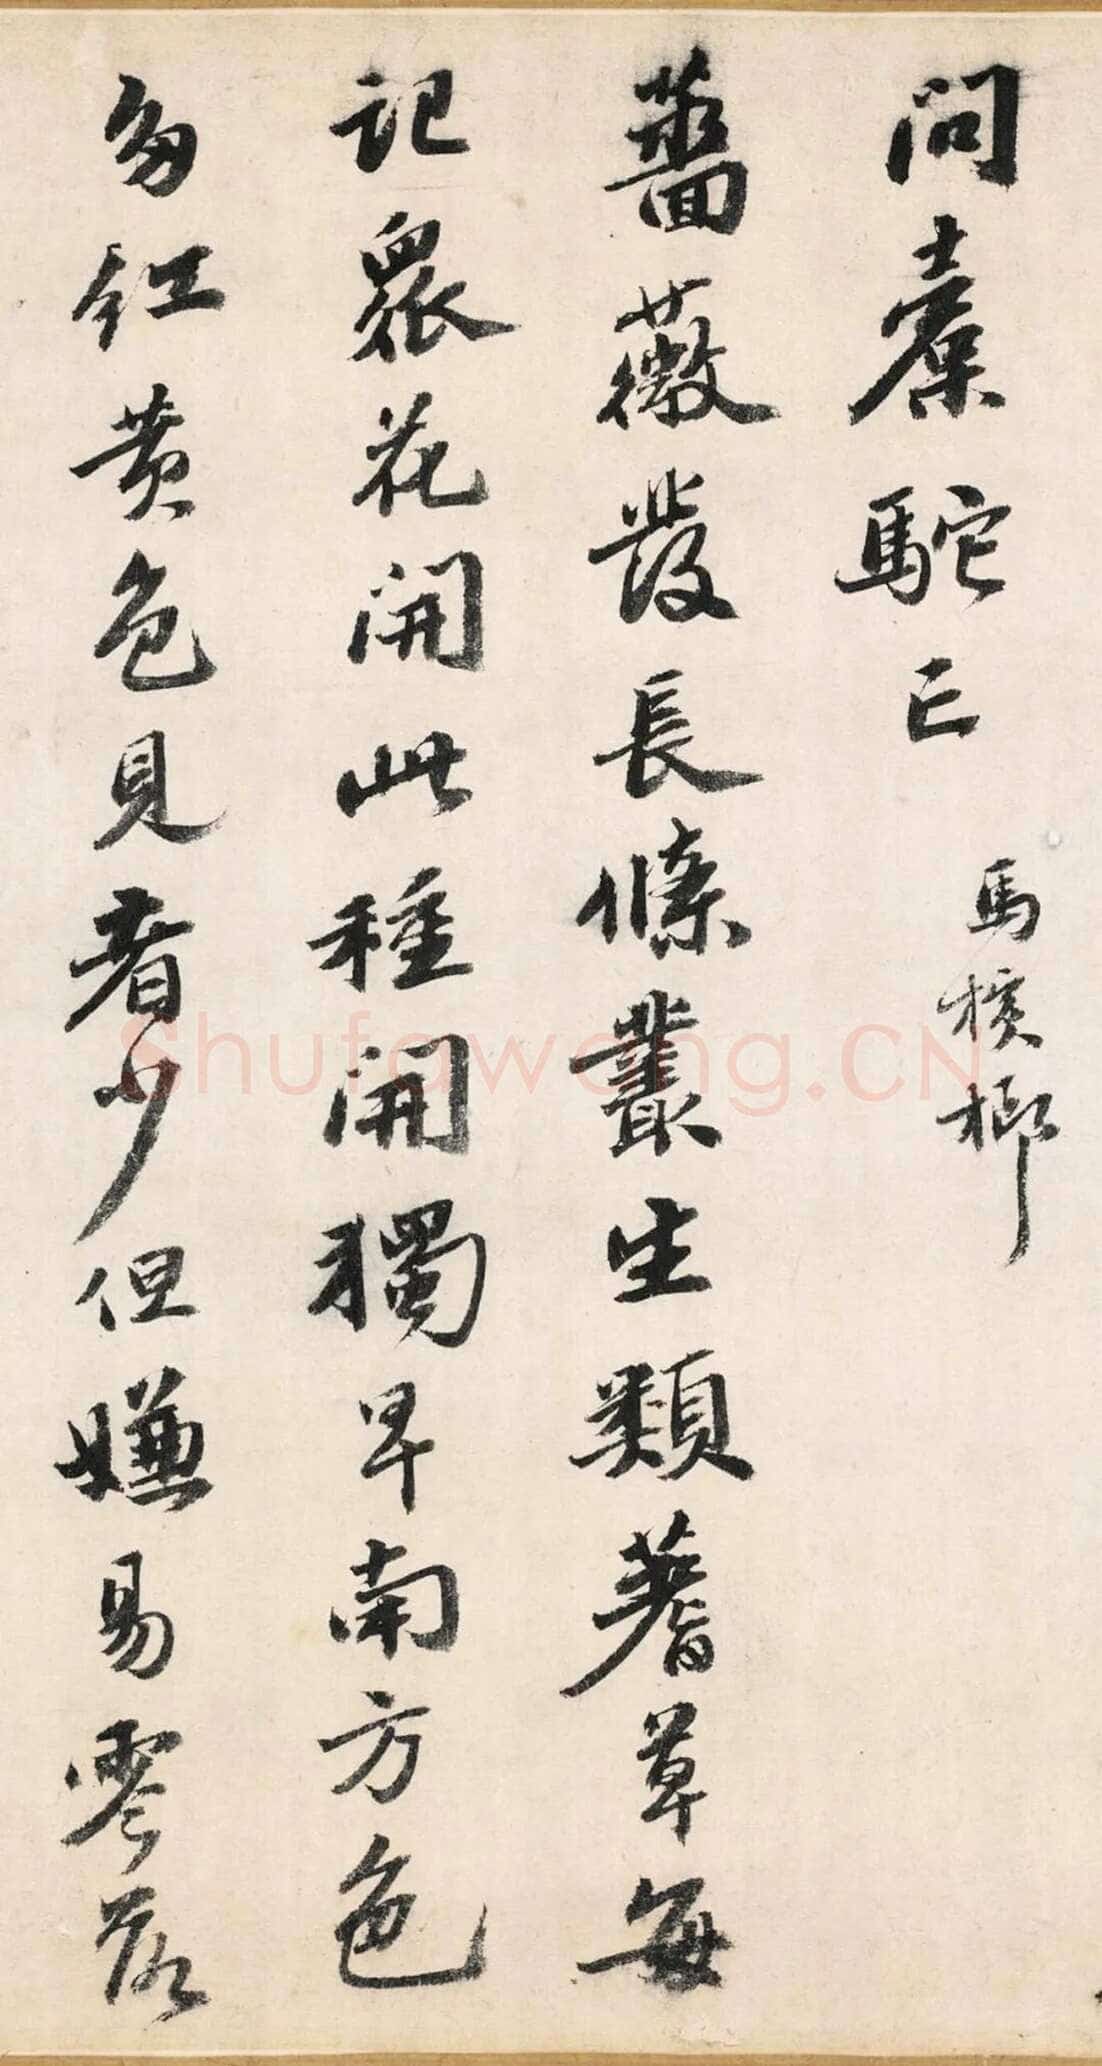 問橐駝已
馬檳榔
薔薇發長條叢生類蓍草每
記眾花開此種開獨早南方色
多紅黄色見者少但嫌易零落
Shufawang.CN